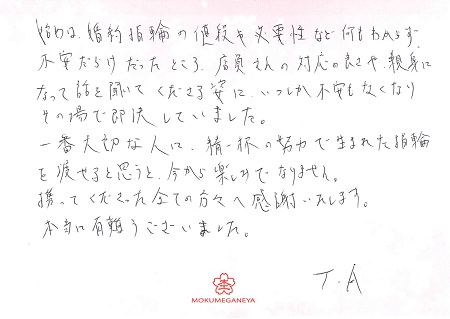 始めは、婚約指輪の値段や必要性など何もわからず、
不安だらけだったところ、店員さんの対応の良さや、親身に
なって話を聞いてくださる姿に、いつしか不安もなくなり
その場で即決していました。
一番大切な人に、精一杯の努力で生まれた指輪
を渡せると思うと、今から楽しみでなりません。
携ってくださった全ての方々へ感謝いたします。
本当に有難うございました。
T.A
MOKUMEGANEYA